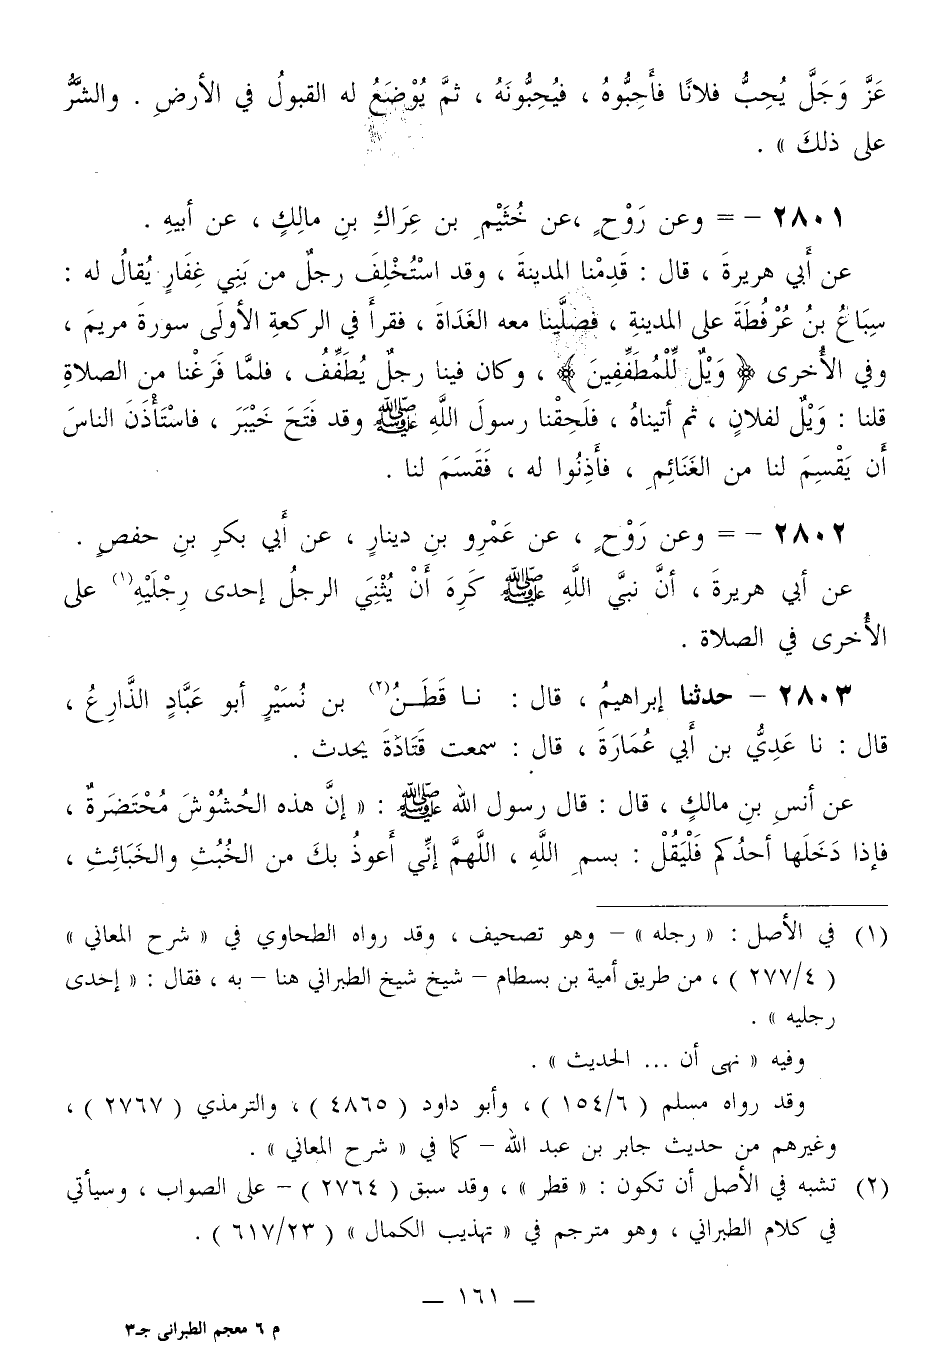 عَزَّ وَجَلَّ يُحِبُّ فلانًا فأَحِبُّوهُ ، فيُحِبُّونَهُ ، ثمَّ يُوْضَعُ له القبولُ في الأرضِ . والشرُّ
على ذلكَ » .
٢٨٠١ – = وعن رَوْحٍ ، عن خُثَيْمِ بن عِرَاكِ بنِ مالِكٍ ، عن أبيهِ .
عن أَبي هريرةَ ، قال : قَدِمْنا المدينةَ ، وقد اسْتُخْلِفَ رجلٌ من بَنِي غِفَارٍ يُقالُ له :
سِبَاعُ بنُ عُرْفُطَةَ على المدينةِ ، فصلَّينا معه الغَدَاةَ ، فقرأَ في الركعةِ الأولَى سورةَ مريمَ ،
وفي الأُخرى ﴿ وَيْلٌ لِّلْمُطَفِّفِينَ ﴾ ، وكان فينا رجلٌ يُطَفِّفُ ، فلمَّا فَرَغْنا من الصلاةِ
قلنا : وَيْلٌ لفلانٍ ، ثم أتيناهُ ، فلَحِقْنا رسولَ اللَّهِ ﷺ وقد فَتَحَ خَيْبَرَ ، فاستَأْذَنَ الناسَ
أن يَقْسِمَ لنا من الغَنَائِمِ ، فأَذِنُوا له ، فَقَسَمَ لنا .
٢٨٠٢ – = وعن رَوْحٍ ، عن عَمْرِو بنِ دينارٍ ، عن أَبي بكرِ بنِ حفصٍ .
عن أبي هريرةَ ، أنَّ نبيَّ اللَّهِ ﷺ كَرِهَ أَنْ يُثْنِيَ الرجلُ إحدى رِجْلَيْهِ(١) على
الأُخرى في الصلاة .
٢٨٠٣ – حدثنا إبراهيمُ ، قال : نـا قَطَـنُ(٢) بن نُسَيْرٍ أبو عَبَّادٍ الذَّارِعُ ،
قال : نا عَدِيُّ بن أَبي عُمَارَةَ ، قال : سمعت قَتَادَةَ يحدث .
عن أنسِ بنِ مالكٍ ، قال : قال رسول الله ﷺ : « إنَّ هذه الحُشُوْشَ مُحْتَضَرةٌ ،
فإذا دَخَلَها أحدُكم فَلْيَقُلْ : بسمِ اللَّهِ ، اللَّهمَّ إنِّي أَعوذُ بكَ من الخُبُثِ والخَبَائِثِ ،
(١) في الأصل : « رجله » – وهو تصحيف ، وقد رواه الطحاوي في « شرح المعاني »
( ٢٧٧/٤ ) ، من طريق أمية بن بسطام – شيخ شيخ الطبراني هنا – به ، فقال : « إحدى
رجليه » .
وفيه « نهى أن ... الحديث » .
وقد رواه مسلم ( ١٥٤/٦ ) ، وأبو داود ( ٤٨٦٥ ) ، والترمذي ( ٢٧٦٧ ) ،
وغيرهم من حديث جابر بن عبد الله – كما في « شرح المعاني » .
(٢) تشبه في الأصل أن تكون : « قطر » ، وقد سبق ( ٢٧٦٤ ) – على الصواب ، وسيأتي
في كلام الطبراني ، وهو مترجم في « تهذيب الكمال » ( ٦١٧/٢٣ ) .
— ١٦١ —
م ٦ معجم الطبرانى جـ٣